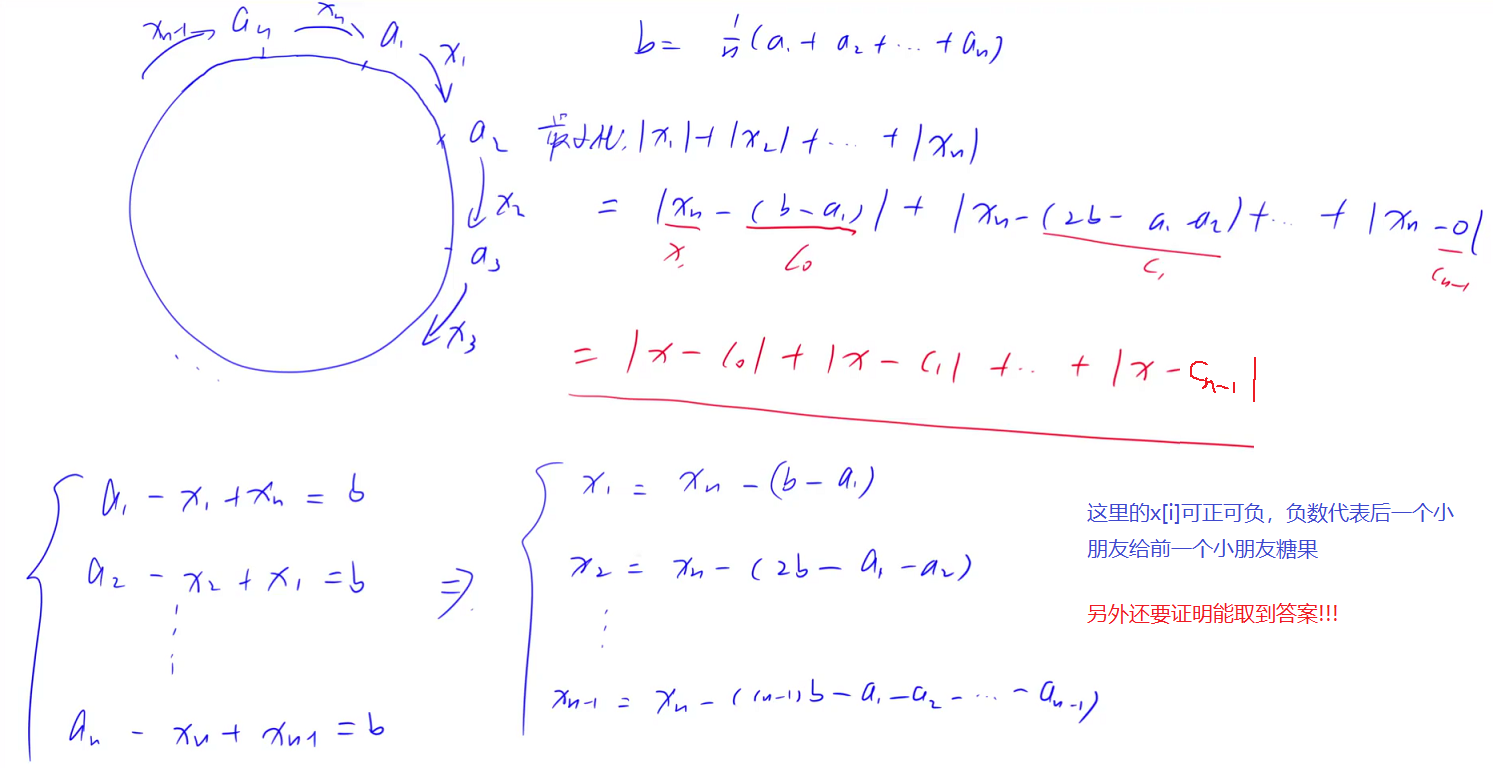 xₙ₋₁ aₙ xₙ a₁ x₁
a₂ x₂
a₃ x₃
b = 1/n (a₁ + a₂ + ... + aₙ)
最小化: |x₁| + |x₂| + ... + |xₙ|
= |xₙ - (b - a₁)| + |xₙ - (2b - a₁ - a₂)| + ... + |xₙ - 0|
x. c₀ c₁ cₙ₋₁
= |x - c₀| + |x - c₁| + ... + |x - cₙ₋₁|
a₁ - x₁ + xₙ = b
a₂ - x₂ + x₁ = b
aₙ - xₙ + xₙ₋₁ = b
⇒
x₁ = xₙ - (b - a₁)
x₂ = xₙ - (2b - a₁ - a₂)
xₙ₋₁ = xₙ - ((n-1)b - a₁ - a₂ - ... - aₙ₋₁)
这里的x[i]可正可负，负数代表后一个小
朋友给前一个小朋友糖果
另外还要证明能取到答案!!!